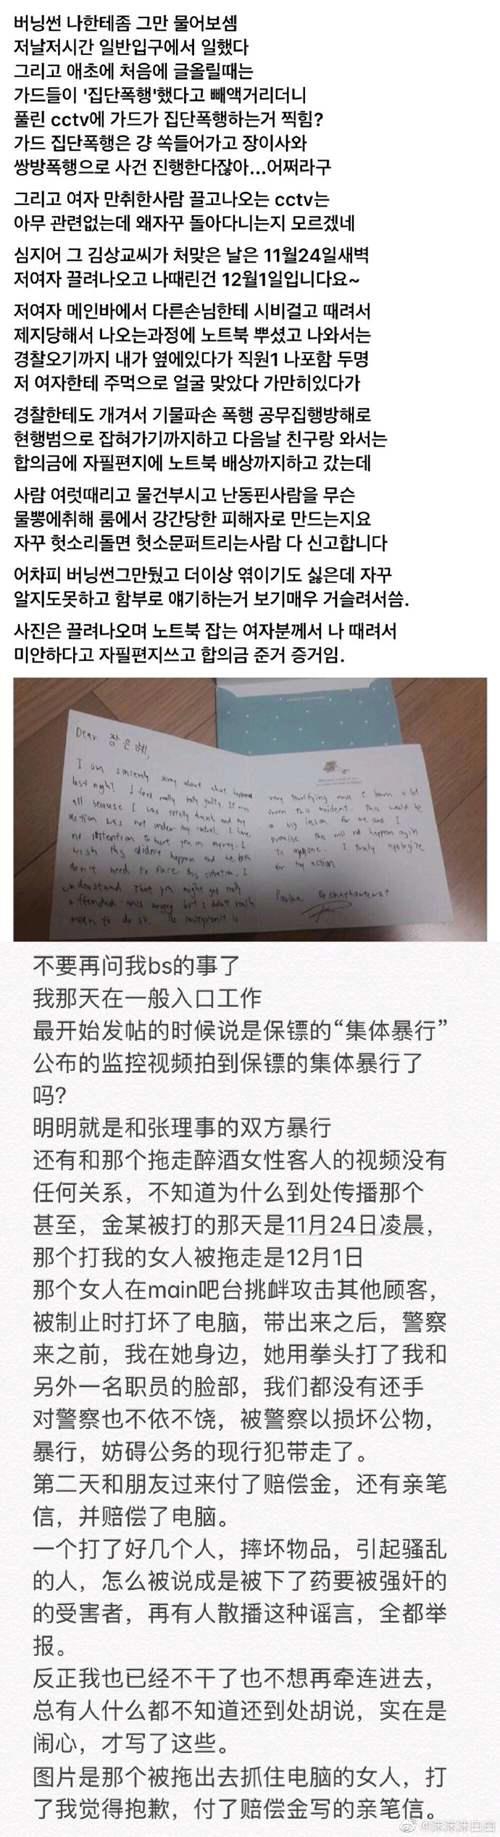 버닝썬 나한테좀 그만 물어보셈
저날저시간 일반입구에서 일했다
그리고 애초에 처음에 글올릴때는
가드들이 '집단폭행'했다고 빼액거리더니
풀린 cctv에 가드가 집단폭행하는거 찍힘?
가드 집단폭행은 걍 쏙들어가고 장이사와
쌍방폭행으로 사건 진행한다잖아...어쩌라구
그리고 여자 만취한사람 끌고나오는 cctv는
아무 관련없는데 왜자꾸 돌아다니는지 모르겠네
심지어 그 김상교씨가 처맞은 날은 11월24일새벽
저여자 끌려나오고 나때린건 12월1일입니다요~
저여자 메인바에서 다른손님한테 시비걸고 때려서
제지당해서 나오는과정에 노트북 뿌셨고 나와서는
경찰오기까지 내가 옆에있다가 직원1 나포함 두명
저 여자한테 주먹으로 얼굴 맞았다 가만히있다가
경찰한테도 개겨서 기물파손 폭행 공무집행방해로
현행범으로 잡혀가기까지하고 다음날 친구랑 와서는
합의금에 자필편지에 노트북 배상까지하고 갔는데
사람 여럿때리고 물건부시고 난동핀사람을 무슨
물뽕에취해 룸에서 강간당한 피해자로 만드는지요
자꾸 헛소리돌면 헛소문퍼트리는사람 다 신고합니다
어차피 버닝썬그만뒀고 더이상 엮이기도 싫은데 자꾸
알지도못하고 함부로 얘기하는거 보기매우 거슬려서씀.
사진은 끌려나오며 노트북 잡는 여자분께서 나 때려서
미안하다고 자필편지쓰고 합의금 준거 증거임.
Dear 장은혜,
I am sincerely sorry about what happened
last night. I feel really really guilty. It was
all because I was really drunk and my
action was not under my control. I have
no intention to hurt you or anyone. I
wish this didn't happen and we both
don't need to face this situation. I
understand that you might get really
offended and angry but I didn't really
mean to do it.
very terrifying and I learn a lot
from this incident. This would be
a big lesson for me and I
promise this will not happen again
to anyone. I truly apologize
for my action
不要再问我bs的事了
我那天在一般入口工作
最开始发帖的时候说是保镖的“集体暴行”
公布的监控视频拍到保镖的集体暴行了
吗?
明明就是和张理事的双方暴行
还有和那个拖走醉酒女性客人的视频没有
任何关系，不知道为什么到处传播那个
甚至，金某被打的那天是11月24日凌晨，
那个打我的女人被拖走是12月1日
那个女人在main吧台挑衅攻击其他顾客，
被制止时打坏了电脑，带出来之后，警察
来之前，我在她身边，她用拳头打了我和
另外一名职员的脸部，我们都没有还手
对警察也不依不饶，被警察以损坏公物，
暴行，妨碍公务的现行犯带走了。
第二天和朋友过来付了赔偿金，还有亲笔
信，并赔偿了电脑。
一个打了好几个人，摔坏物品，引起骚乱
的人，怎么被说成是被下了药要被强奸的
的受害者，再有人散播这种谣言，全都举
报。
反正我也已经不干了也不想再牵连进去，
总有人什么都不知道还到处胡说，实在是
闹心，才写了这些。
图片是那个被拖出去抓住电脑的女人，打
了我觉得抱歉，付了赔偿金写的亲笔信。